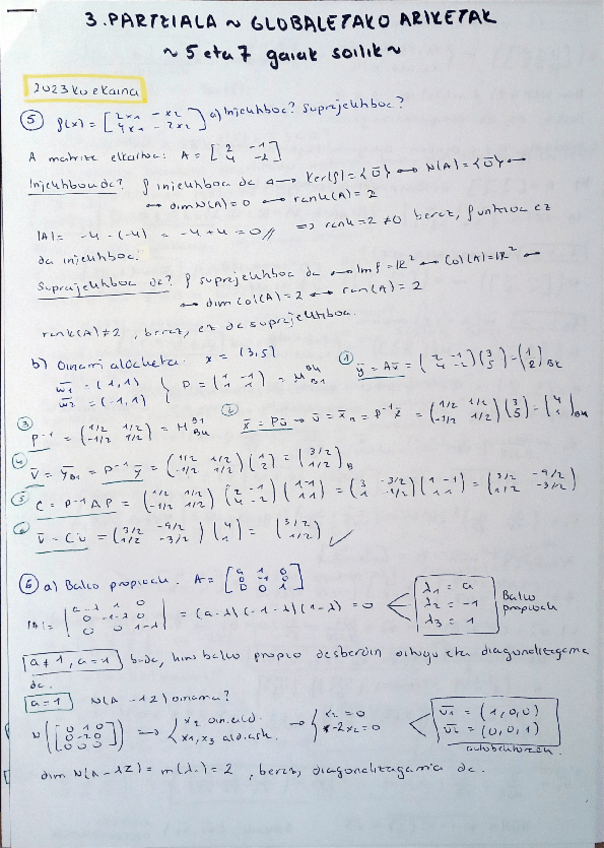 3. PARTZIALA ~ GLOBALETAKO ARIKETAK
~ 5 eta 7 gaiak soilik ~
2023ko ekaina
5 f(x) = [2x1 - x2 / 4x1 - 2x2] a) Injektiboa? Suprajektiboa?
A matrize elkartua: A = [2 -1 / 4 -2]
Injektiboa da? f injektiboa da ↔ Ker(f) = {0̅} ↔ N(A) = {0̅} ↔
↔ dim N(A) = 0 ↔ rank(A) = 2
|A| = -4 - (-4) = -4 + 4 = 0 // ⇒ rank = 2 ≠ 0 beraz, funtzioa ez
da injektiboa.
Suprajektiboa da? f suprajektiboa da ↔ Imf = ℝ² ↔ Col(A) = ℝ² ↔
↔ dim Col(A) = 2 ↔ ran(A) = 2
rank(A) ≠ 2, beraz, ez da suprajektiboa.
b) Oinarri aldaketa: x = (3,5) ① y̅ = Av̅ = (2 -1 / 4 -2)(3 / 5) = (1 / 2)Bk
w̅1 = (1,1)
w̅2 = (-1,1) } P = (1 -1 / 1 1) = M
③ P⁻¹ = (1/2 1/2 / -1/2 1/2) = M ② x̅ = Pu̅ → u̅ = P⁻¹x̅ = (1/2 1/2 / -1/2 1/2)(3 / 5) = [4 / 1]
④ v̅ = y̅ = P⁻¹ y̅ = (1/2 1/2 / -1/2 1/2)(1 / 2) = (3/2 / 1/2)B
⑤ C = P⁻¹AP = (1/2 1/2 / -1/2 1/2)(2 -1 / 4 -2)(1 -1 / 1 1) = (3 -3/2 / 1 -1/2)(1 -1 / 1 1) = (3/2 -9/2 / 1/2 -3/2)
⑥ v̅ = Cu̅ = (3/2 -9/2 / 1/2 -3/2)(4 / 1) = (3/2 / 1/2) ✓
6 a) Balio propioak. A = [a 1 0 / 0 -1 0 / 0 0 1]
= |a-λ 1 0 / 0 -1-λ 0 / 0 0 1-λ| = (a-λ)(-1-λ)(1-λ) = 0 < λ1 = a
λ2 = -1
λ3 = 1
Balio propioak
a ≠ 1, a = 1 bada, hiru balio propio desberdin ditugu eta diagonalizagarria
da.
a = 1 N(A - 1I) oinarria?
N([0 1 0 / 0 -2 0 / 0 0 0]) ⇒ {x2 oin. ald. / x1, x3 ald. ask. → {x2 = 0 / -2x2 = 0 < v̅1 = (1,0,0)
v̅2 = (0,0,1)
dim N(A - λI) = m(λ) = 2, beraz, diagonalizagarria da.